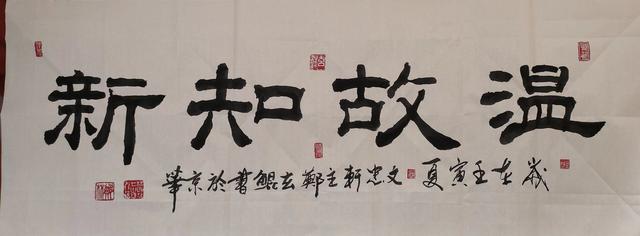 温故知新
岁在壬寅夏 文忠轩主郑玄鲲书於京华